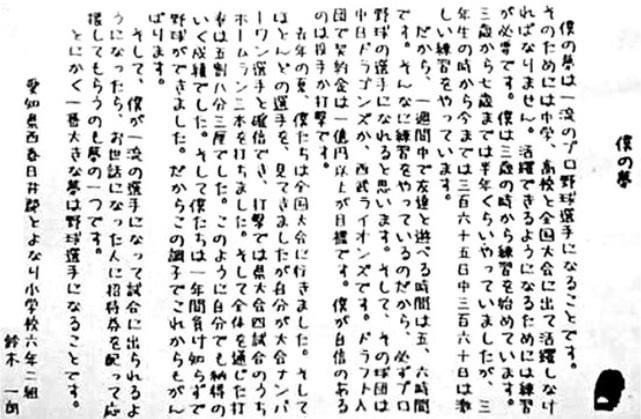 僕の夢
僕の夢は一流のプロ野球選手になることです。
そのためには中学、高校と全国大会に出て活躍しなけ
ればなりません。活躍できるようになるためには練習
が必要です。僕は三歳の時から練習を始めています。
三歳から七歳までは半年くらいやっていましたが、三
年生の時から今までは三百六十五日中三百六十日は激
しい練習をやっています。
だから、一週間中で友達と遊べる時間は五、六時間
です。そんなに練習をやっているのだから、必ずプロ
野球の選手になれると思います。そして、その球団は
中日ドラゴンズか、西武ライオンズです。ドラフト入
団で契約金は一億円以上が目標です。僕が自信のある
のは投手か打撃です。
去年の夏、僕たちは全国大会に行きました。そして
ほとんどの選手を、見てきましたが自分が大会ナンバ
ーワン選手と確信でき、打撃では県大会四試合のうち
ホームラン三本を打ちました。そして全体を通した打
率は五割八分三厘でした。このように自分でも納得の
いく成績でした。そして僕たちは一年間負け知らずで
野球ができました。だからこの調子でこれからもがん
ばります。
そして、僕が一流の選手になって試合に出られるよ
うになったら、お世話になった人に招待券を配って応
援してもらうのも夢の一つです。
とにかく一番大きな夢は野球選手になることです。
愛知県西春日井郡とよなり小学校六年二組
鈴木 一朗